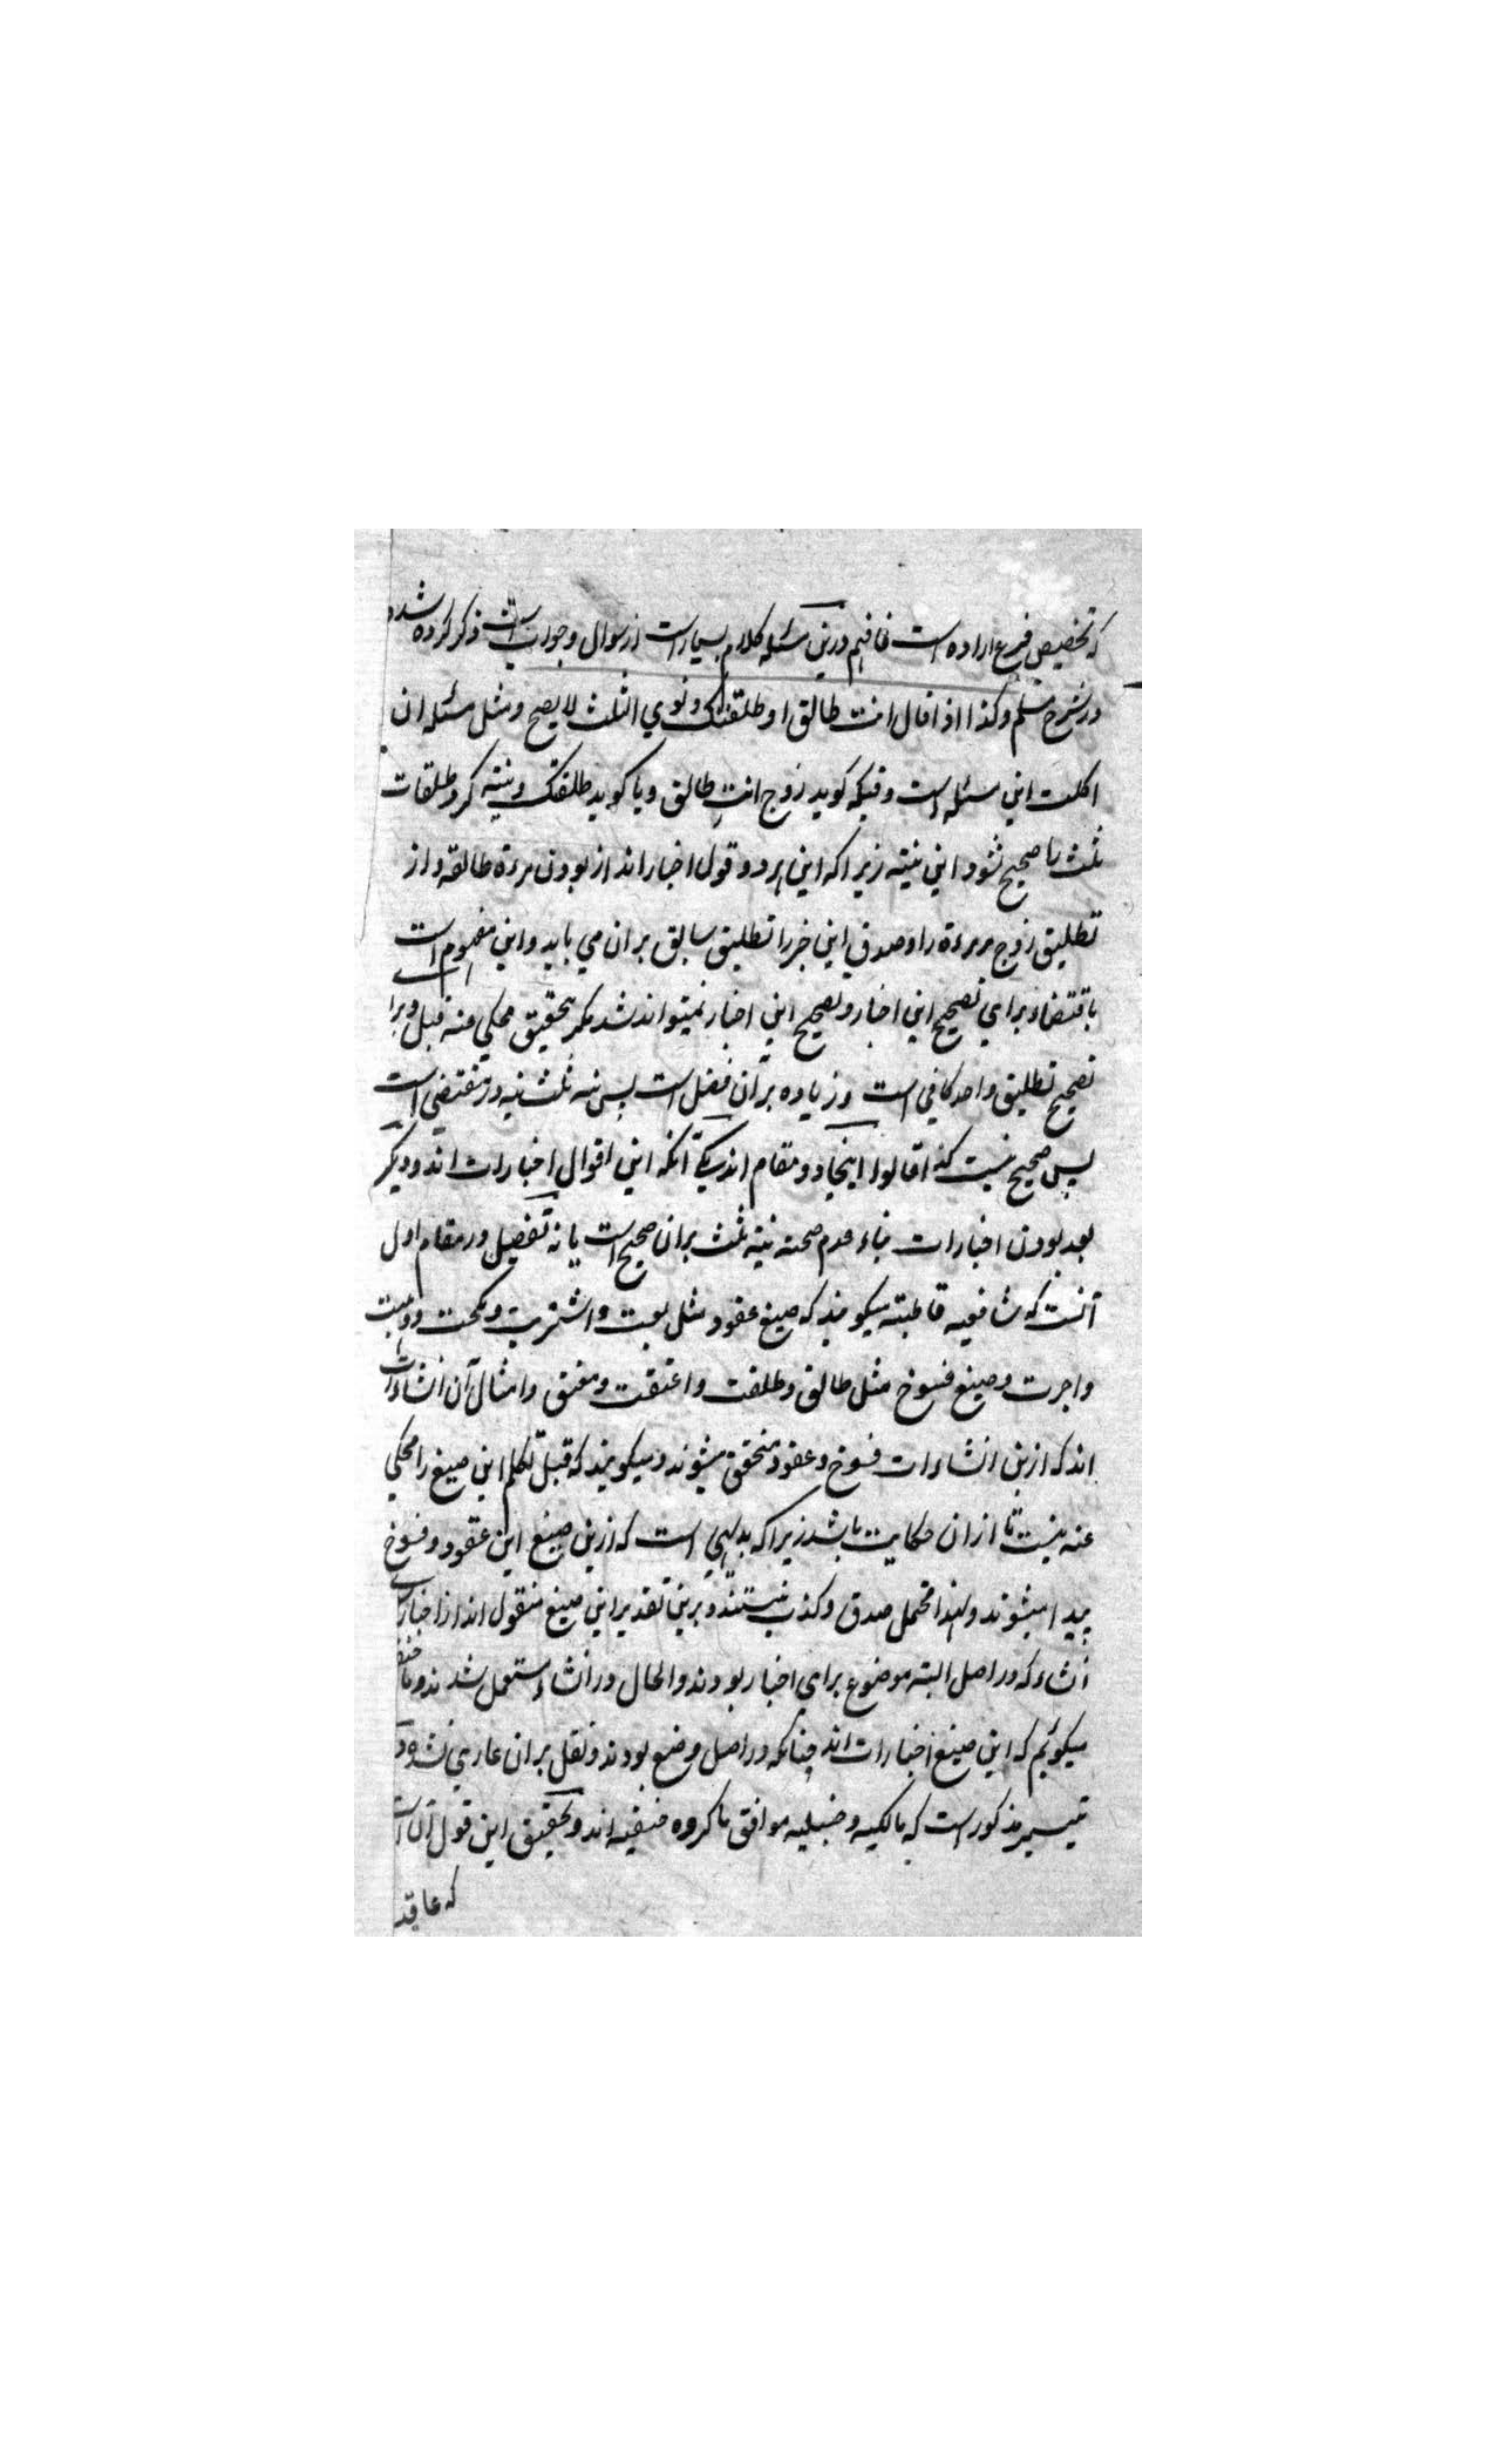 که تخصیص فرع اراده است فافهم درین مسئله کلام بسیار است از سوال و جواب ذکر کرده شد
در شرح مسلم وکذا اذا قال انت طالق او طلقتک ونوی الثلث لا یصح و مثل مسئله ان
اکلت این مسئله است وقتیکه کوید زوج انتِ طالق و یا کوید طلقتک و نیته کرد طلقات
ثلث را صحیح نشود این نیته زیرا که این هر دو قول اخبار اند از بودن مرءة طالقه و از
تطلیق زوج مر مرءة را و صدق این خبر را تطلیق سابق بران می باید و این مفهوم است
باقتضاء برای تصحیح این اخبار و تصحیح این اخبار نمیتواند شد مکر بتحقیق محکی عنه قبل و برا
تصحیح تطلیق واحد کافی است و زیاده بر آن فضل است پس نیه ثلث نیه در مقتضی است
پس صحیح نیست کذا قالوا اینجا دو مقام اند یکی آنکه این اقوال اخبارات اند و دیکر
بعد بودن اخبارات بناء عدم صحته نیته ثلث بران صحیح است یا نه تفصیل در مقام اول
آنست که شافعیه قاطبته میکویند که صیغ عقود مثل بعت و اشتریت و نکحت و وهبت
و اجرت و صیغ فسوخ مثل طالق و طلقت و اعتقت و معتق و امثال آن انشاءات
اند که ازین انشاءات فسوخ و عقود متحقق میشوند و میکویند که قبل تکلم این صیغ را محکی
عنه نیست تا از ان حکایت باشد زیرا که بدیهی است که ازین صیغ این عقود و فسوخ
پیدا میشوند و لهذا محتمل صدق و کذب نیستند و برین تقدیر این صیغ منقول اند از اخبار ب
انشاء که در اصل البته موضوع برای اخبار بودند و الحال در انشاء مستعمل شدند و ما
میکوئیم که این صیغ اخبارات اند چنانکه در اصل وضع بودند و نقل بران عاری نشده و در
تیسیر مذکور است که مالکیه و حنبلیه موافق با کروه حنفیه اند و تحقیق این قول آن است
که عاقد